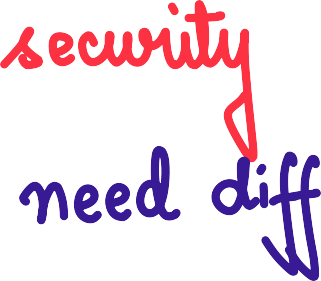 security
need diff